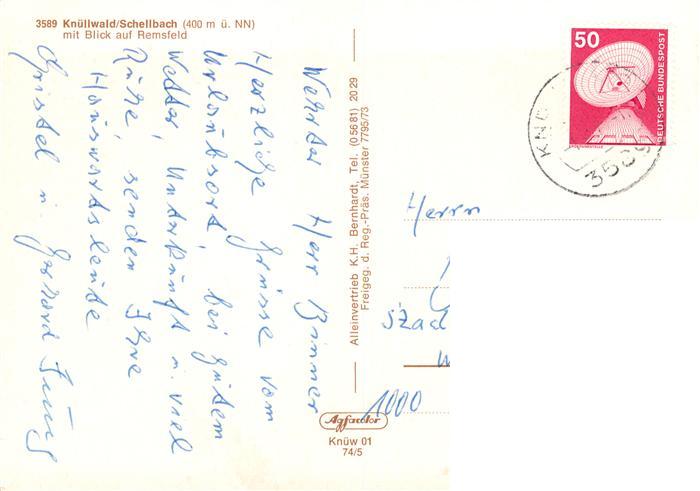 3589 Knüllwald/Schellbach (400 m ü. NN)
mit Blick auf Remsfeld
Wehrter Herr Binner
Herzliche Grüsse vom
Urlaubsort bei gutem
Wetter, Unterkunft u. viel
Ruhe, senden Ihre
Hauswartsleute
Christel u. Gerhard Jung
Alleinvertrieb K.H. Bernhardt, Tel. (05681) 2029
Freigeg. d. Reg.-Präs. Münster 7795/73
Agfacolor
Knüw 01
74/5
50
DEUTSCHE BUNDESPOST
3589
Herrn
1000